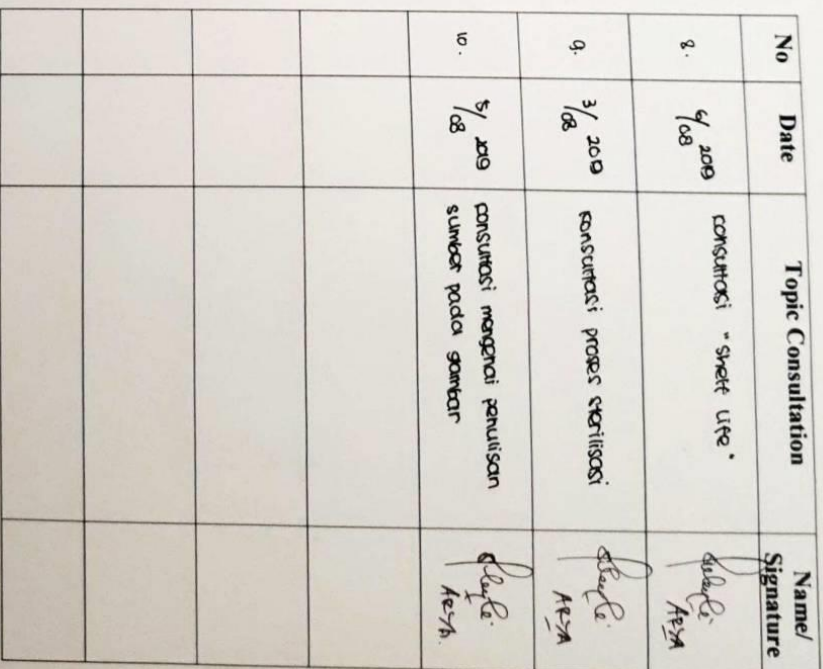 No Date Topic Consultation Name/
Signature
8. 6/08 2019 consultasi "Shelf life" ARYA
9. 3/08 2019 konsultasi proses sterilisasi ARYA
10. 5/08 2019 consultasi mengenai penulisan
sumber pada gambar ARYA.